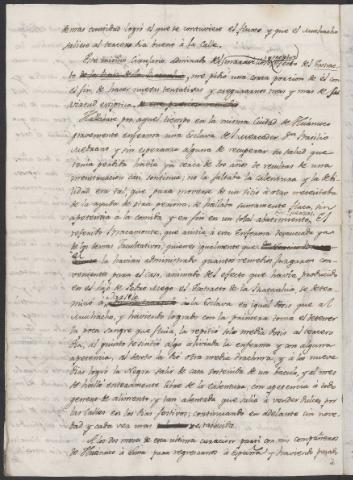 mas cantidad logró el que se contuviese el fluxo y que el muchacho
saliese al tercero dia bueno à la Calle.
Este mismo Cirujano admirado del efecto del Extrac-
to me pidio una corta porcion de él con
el fin de hacer nuevas tentativas y asegurarse mas y mas de su
virtud
Hallabase por aquel tiempo en la misma Ciudad de Huanuco
gravemente enferma una Esclava del mercader Dn. Basilio
y sin esperanza alguna de recuperar su salud que
tenia perdida havia ya cerca de dos años de resultas de una
menstruacion casi continua; no la faltaba la calentura y la debi-
lidad era tal, que para moverse de un sitio à otro necesitaba
de la ayuda de otra persona, se hallaba sumamente flaca, sin
apetencia à la comida, y en fin en un total abatimiento. El
referido que asistia à esta Enferma desauciada ya
de los demas Facultativos, quienes igualmente que
el la havian administrado quantos remedios juzgaron con-
venientes para el caso, animado del efecto que havia producido
en el hijo de Pedro el Extracto de la Ratanhia, se deter-
minó à darselo à la Esclava en igual dosis que al
muchacho, y haviendo logrado con la primera toma el detener
la poca sangre que fluía, la repitió otra media dosis al tercero
dia; al quinto se sintió algo aliviada la enferma y con alguna
apetencia, al sexto la dió otra media drachma, y à los nueve
dias logró la Negra salir de casa sostenida de un baculo, y al mes
se halló enteramente libre de la calentura, con apetencia à todo
genero de alimento, y tan alentada que salió à vender dulces por
las Calles en los dias festivos; continuando en adelante sin nove-
dad y cada vez mas restablecida.
A los dos meses de esta ultima curacion pasé con mis compañeros
de Huanuco à Lima para regresarnos à España y haviendo